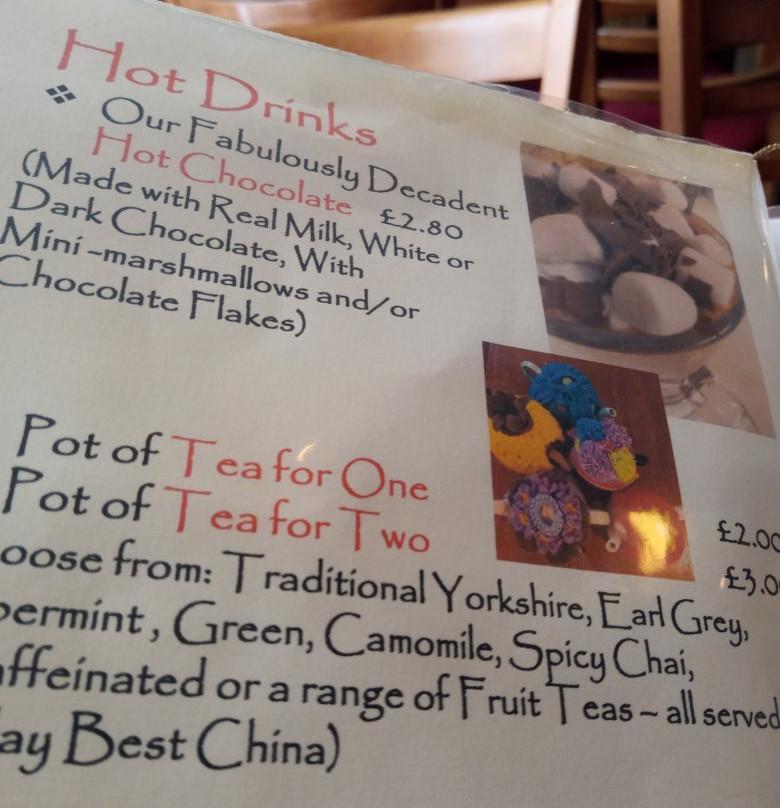 Hot Drinks
❖ Our Fabulously Decadent
Hot Chocolate £2.80
(Made with Real Milk, White or
Dark Chocolate, With
Mini-marshmallows and/or
Chocolate Flakes)
Pot of Tea for One £2.00
Pot of Tea for Two £3.0
oose from: Traditional Yorkshire, Earl Grey,
permint, Green, Camomile, Spicy Chai,
affeinated or a range of Fruit Teas ~ all served
ay Best China)